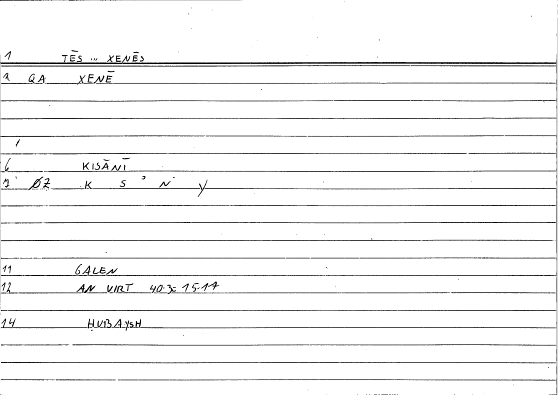 1 TĒS ... XENĒS
2 QA XENĒ
6 KISĀNĪ
7 ØZ K S ᵓ N y
11 GALEN
12 AN VIRT 40.3c 15-17
14 ḤUBAYSH